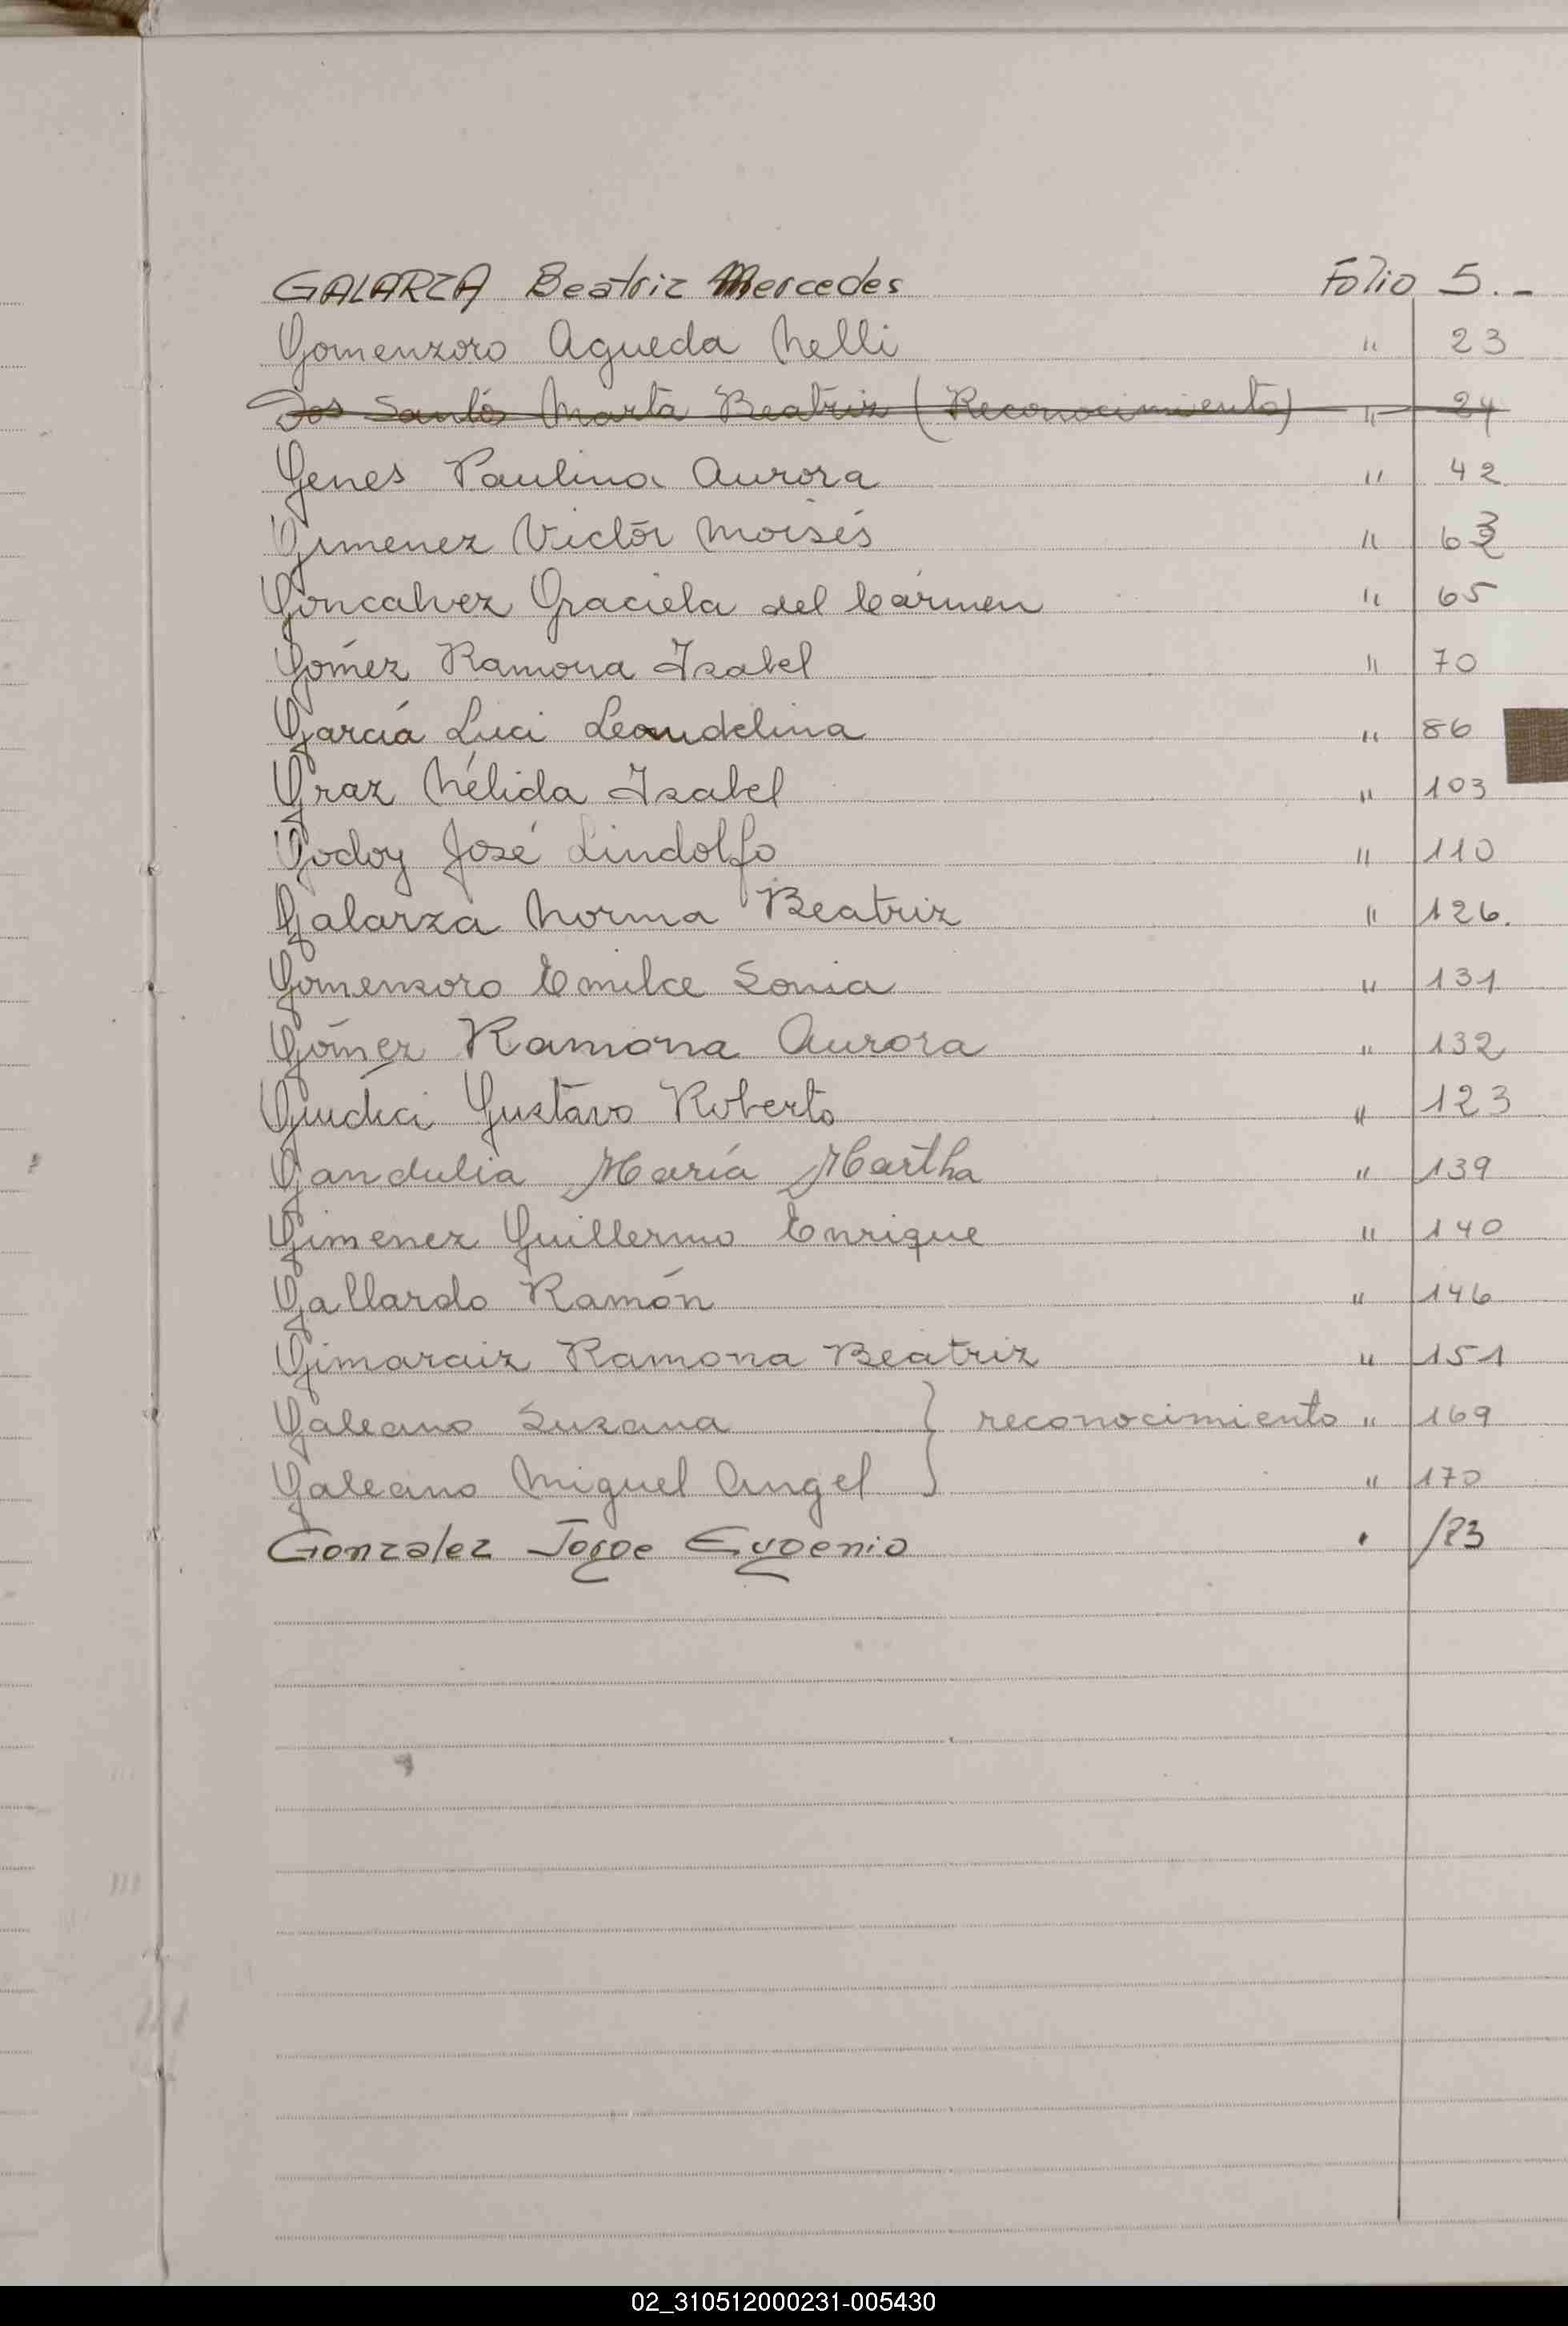 GALARZA Beatriz Mercedes Folio 5.-
Gomenzoro Agueda Nelli " 23
Dos Santos Marta Beatriz (Reconocimiento) " 24
Genes Paulina Aurora " 42
Gimenez Victor Moisés " 63
Goncalvez Graciela del Cármen " 65
Gómez Ramona Isabel " 70
García Luci Leandelina " 86
Graz Nélida Isabel " 103
Godoy José Lindolfo " 110
Galarza Norma Beatriz " 126.
Gomensoro Emilce Sonia " 131
Gómez Ramona Aurora " 132
Giudici Gustavo Roberto " 123
Gandulia María Martha " 139
Gimenez Guillermo Enrique " 140
Gallardo Ramón " 146
Gimaraiz Ramona Beatriz " 151
Galeano Susana } reconocimiento " 169
Galeano Miguel Angel } " 170
Gonzalez Jorge Eugenio
02_310512000231-005430